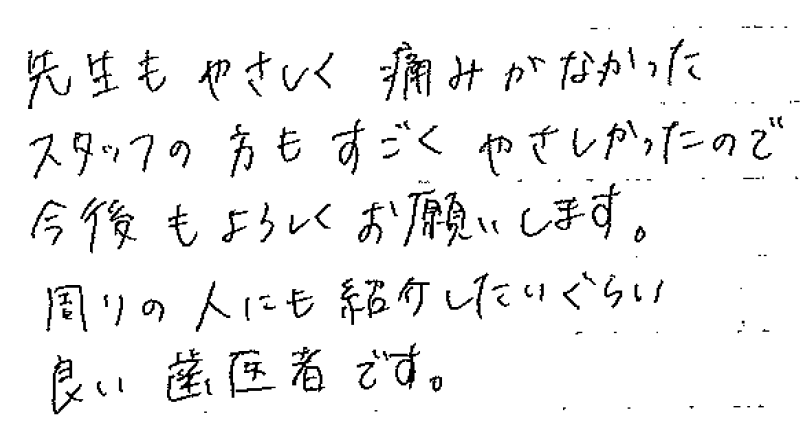 先生もやさしく痛みがなかった
スタッフの方もすごくやさしかったので
今後もよろしくお願いします。
周りの人にも紹介したいぐらい
良い歯医者です。